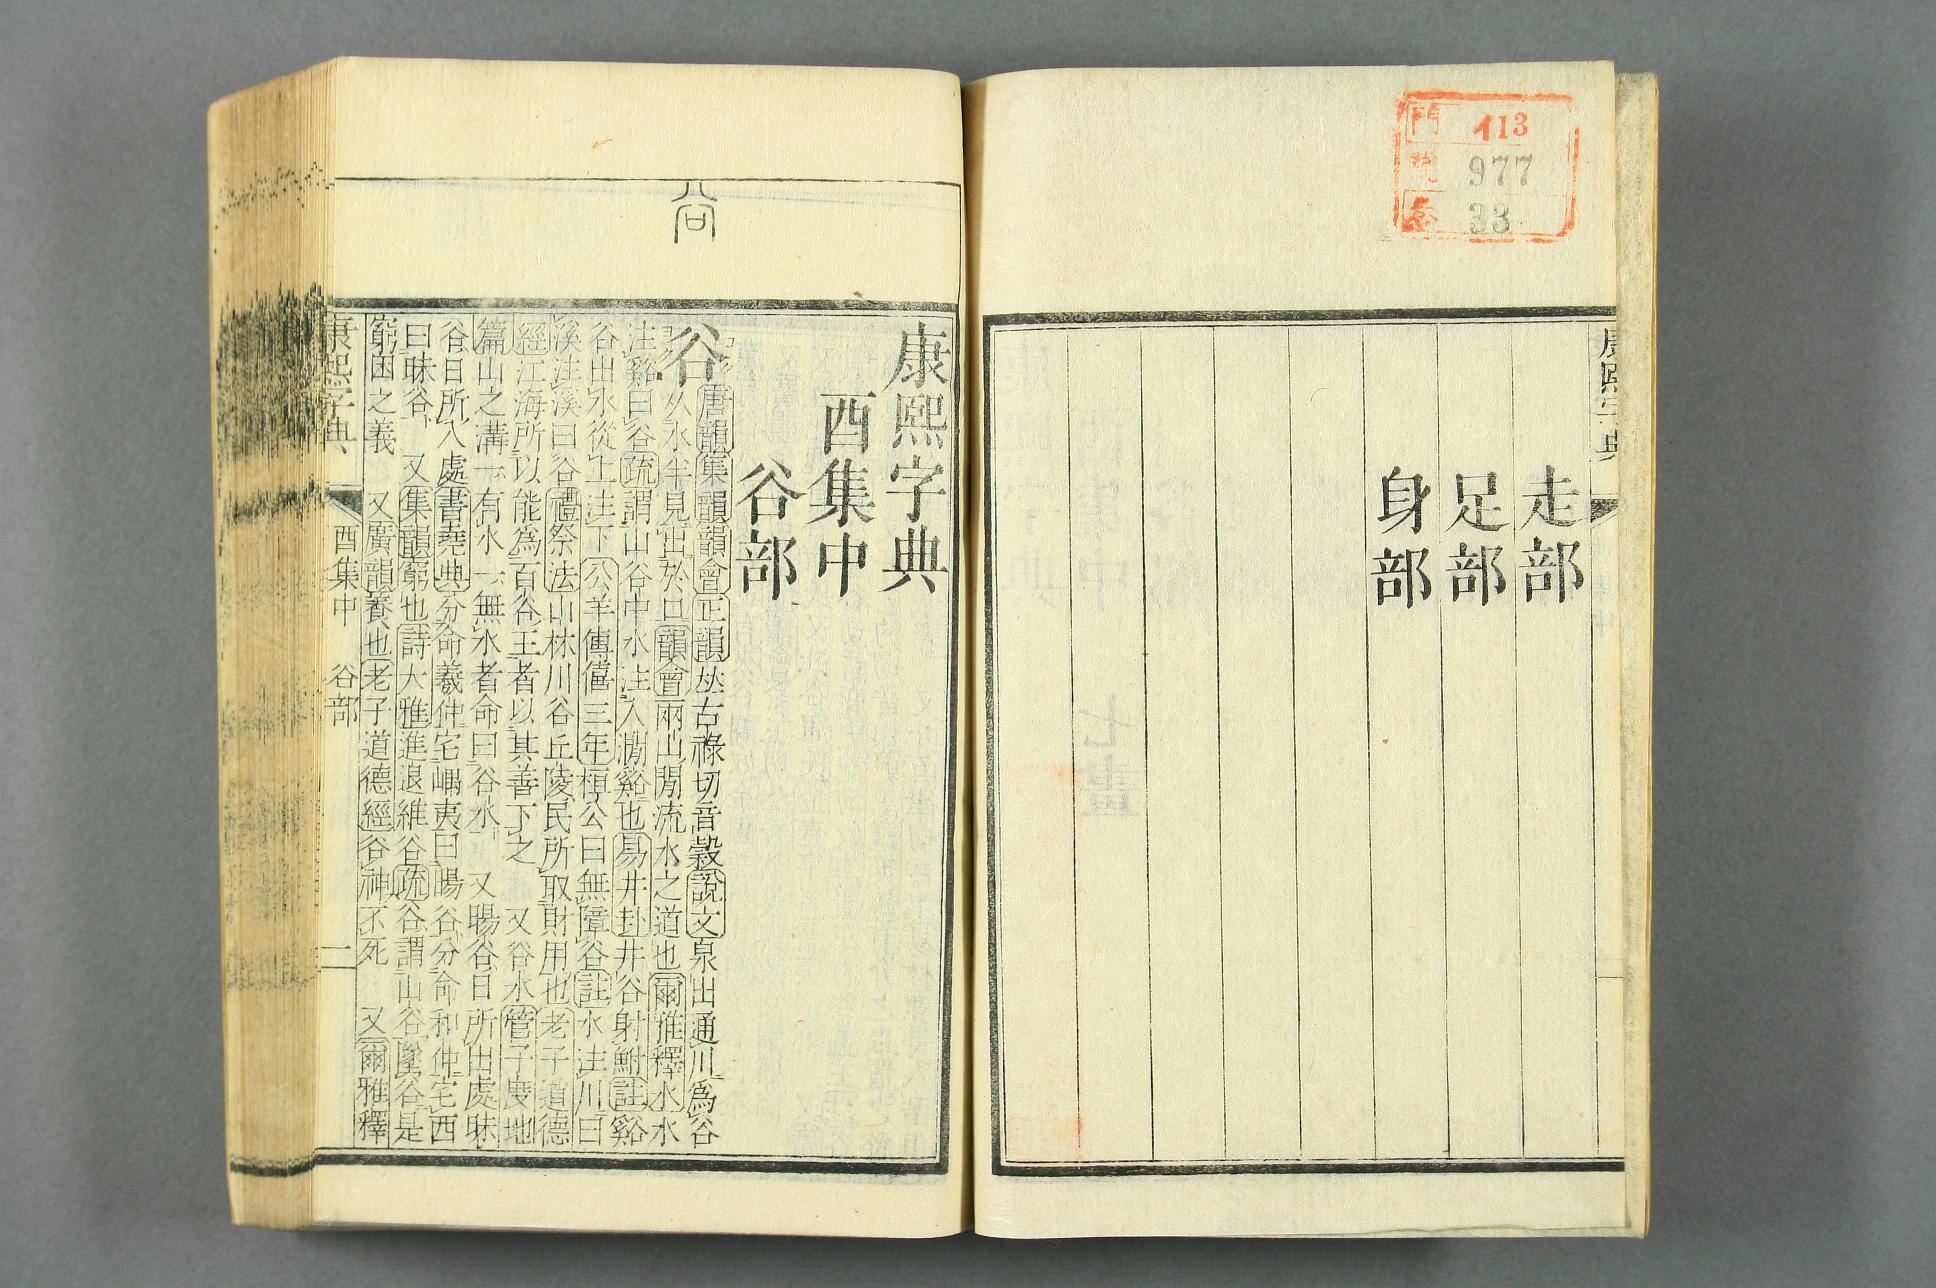 門
號 977
卷 33
康熙字典
走部
足部
身部
康熙字典
酉集中
谷部
谷 唐韻集韻韻會正韻𠀤古祿切音穀說文泉出通川爲谷
从水半見出於口韻會兩山閒流水之道也爾雅釋水水
注谿曰谷疏謂山谷中水注入澗谿也易井卦井谷射鮒註谿
谷出水從上注下公羊傳僖三年桓公曰無障谷註水注川曰
溪注溪曰谷禮祭法山林川谷丘陵民所取財用也老子道德
經江海所以能爲百谷王者以其善下之 又谷水管子度地
篇山之溝一有水一無水者命曰谷水 又暘谷日所出處昧
谷日所入處書堯典分命羲仲宅嵎夷曰暘谷分命和仲宅西
曰昧谷 又集韻窮也詩大雅進退維谷疏谷謂山谷墜谷是
窮困之義 又廣韻養也老子道德經谷神不死 又爾雅釋
康熙字典 酉集中 谷部 二